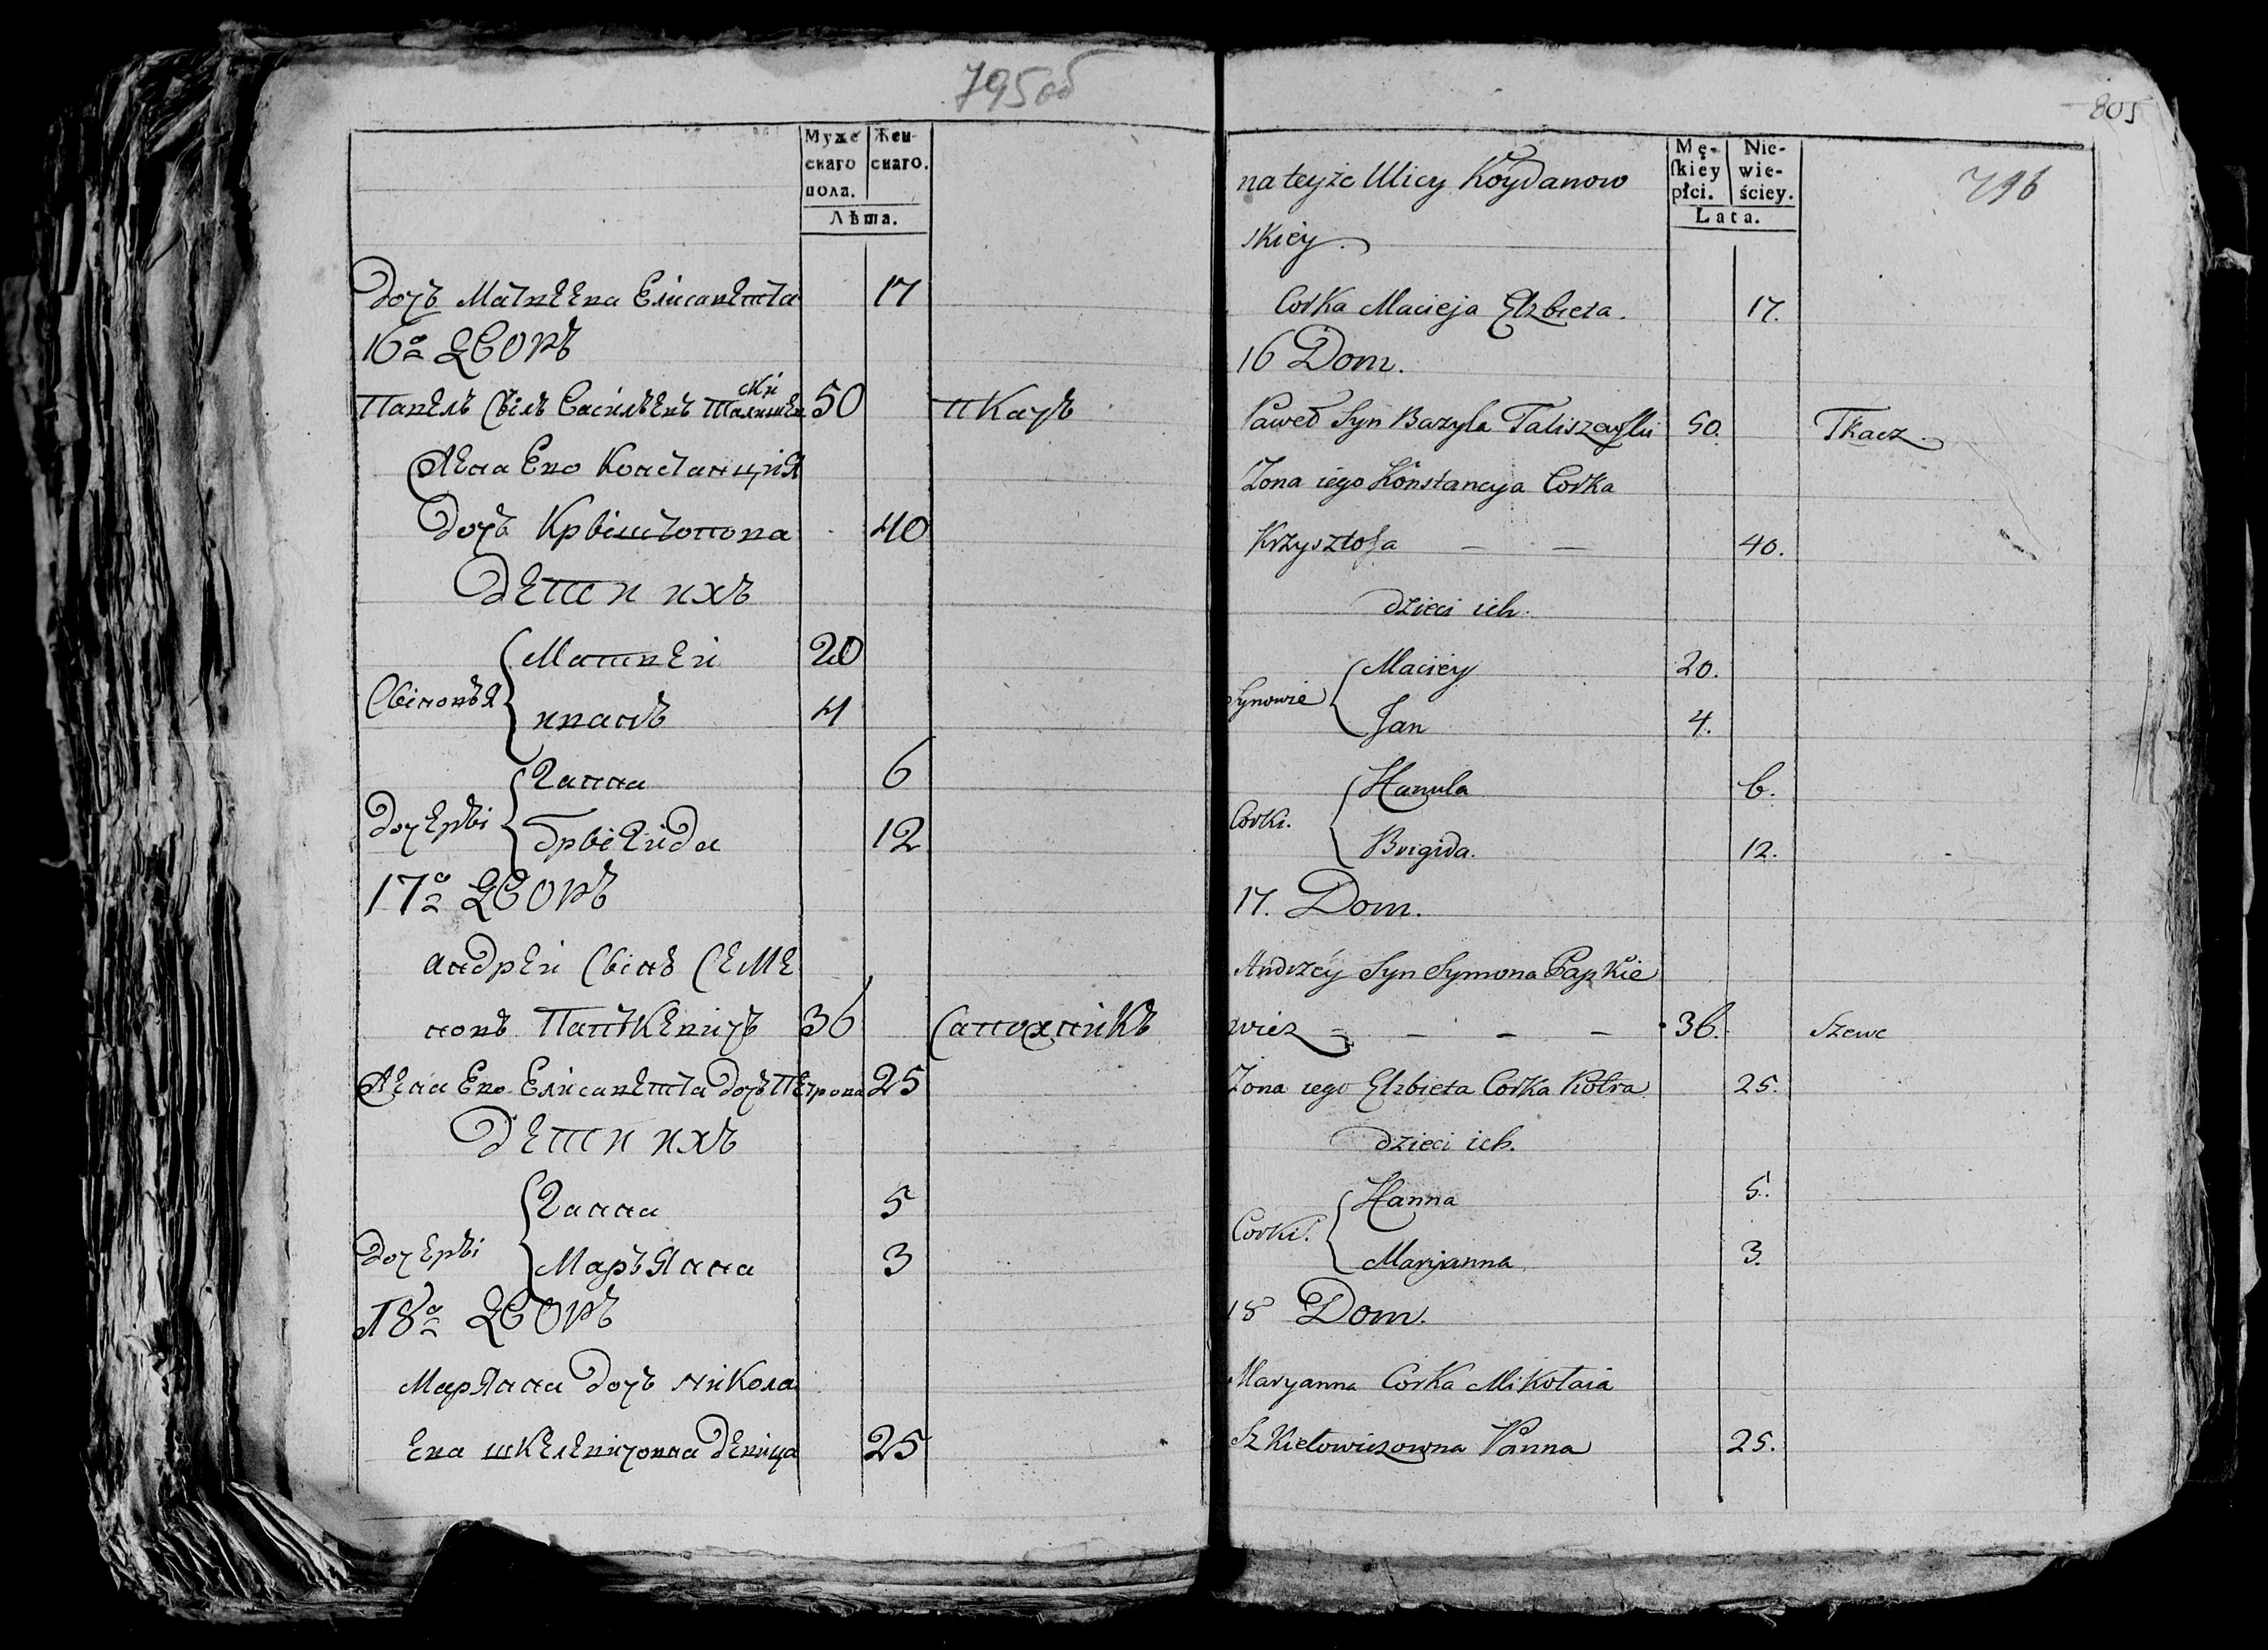 795об
Муже Жен-
скаго скаго.
пола.
Лѣта.
дочъ Матвеева Елисавета 17
16й дворъ
Павелъ Сынъ Васильевъ Талишевски 50 ткачъ
Жена Ево Констанция
дочъ Крыштопова 40
дети ихъ
Сыновья
Матвей 20
иванъ 4
дочеры
Ганна 6
Брыгида 12
17й дворъ
андрей Сынъ Семе
новъ Папкевичъ 36 Сапожникъ
Жена Ево Елисавета дочъ Петрова 25
дети ихъ
дочеры
Ганна 5
Марьянна 3
18й дворъ
Марянна дочъ никола
ева шкелевичовна девица 25
805
796
Mę- Nie-
skiey wie-
płci. ściey.
Lata.
na teyże Ulicy Koydanow
skiey.
Corka Macieja Elzbieta. 17.
16 Dom.
Paweł Syn Bazyla Taliszewski 50. Tkacz.
Zona iego Konstancya Corka
Krzysztofa — — 40.
dzieci ich.
Synowie
Maciey 20.
Jan 4.
Corki.
Hanula 6.
Brigida. 12.
17. Dom.
Andrzey Syn Symona Papkie
wicz — — — — 36. Szewc
Zona iego Elzbieta Corka Piotra 25.
dzieci ich.
Corki.
Hanna 5.
Maryanna 3.
18 Dom.
Maryanna Corka Mikołaia
Szkielowiczowna Panna 25.